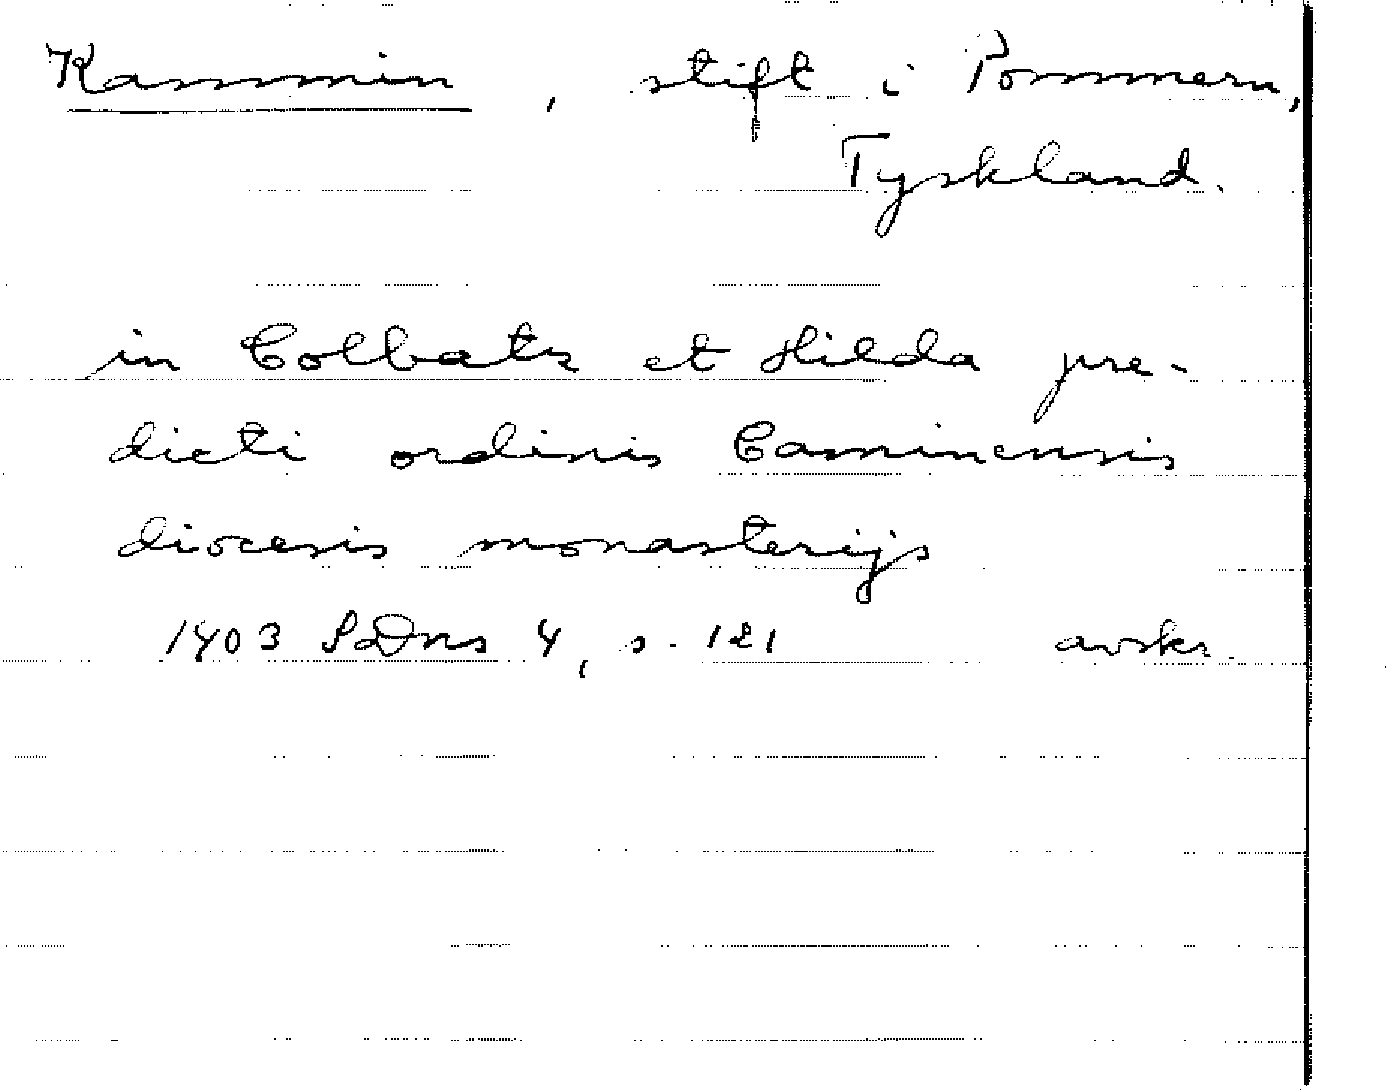 Kammin, stift i Pommern,
Tyskland.
in Colbatz et Hilda pre-
dicti ordinis Caminensis
diocesis monasterijs
1403 SDns 4, s. 121 avskr.